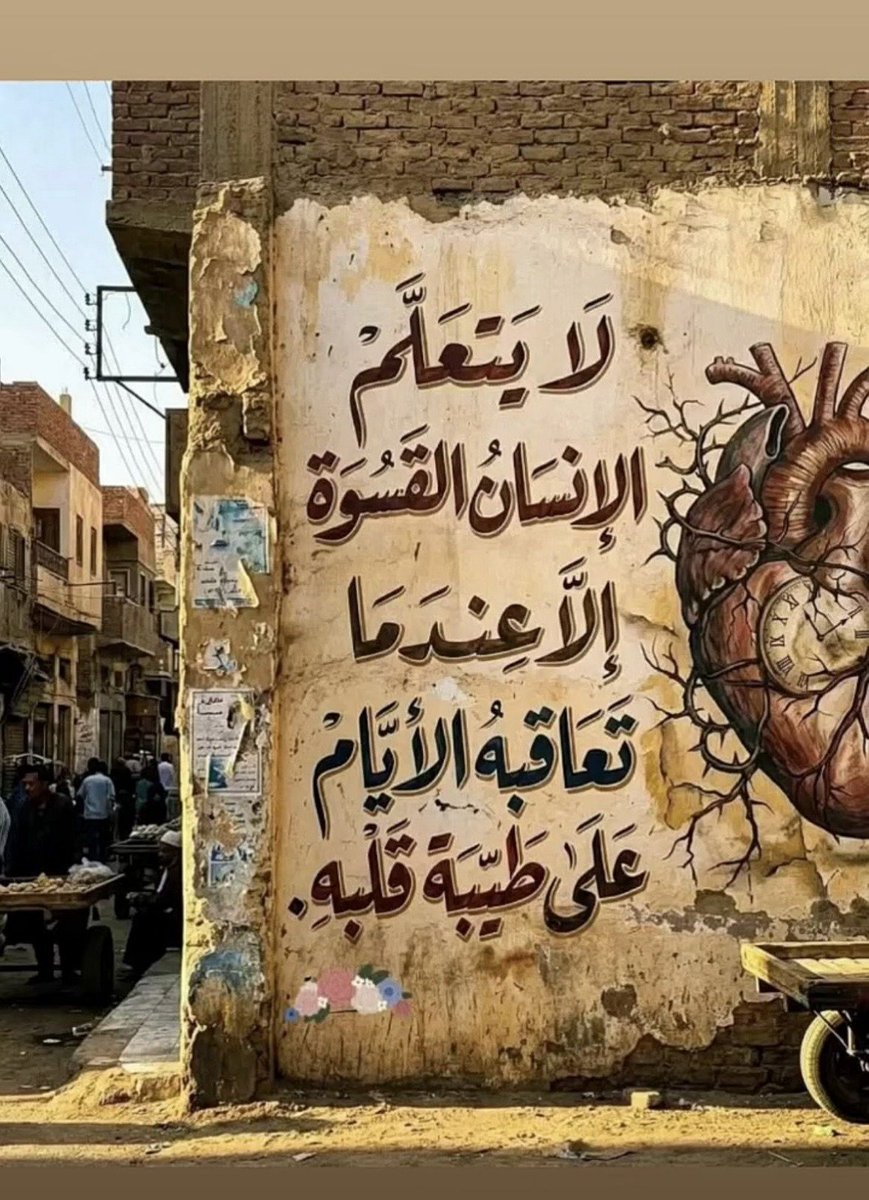 لَا يَتعَلَّمْ
الإنسَانُ القَسُوَة
إلَّا عِندَمَا
تَعَاقبهُ الأيَّامْ
عَلَى طَيّبَة قَلْبهِ.